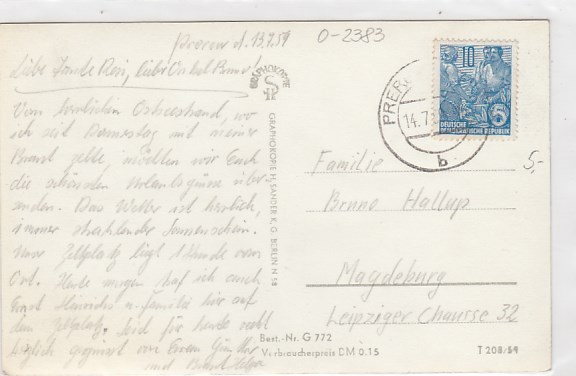 Prerow d. 13.7.59
0-2383
Liebe Tante Resi, lieber Onkel Bruno!
Vom herrlichen Ostseestrand, wo
ich seit Donnerstag mit meiner
Braut zelte, möchten wir Euch
die schönsten Urlaubsgrüße über-
senden. Das Wetter ist herrlich,
immer strahlender Sonnenschein.
Unser Zeltplatz liegt 1 Stunde vom
Ort. Heute morgen traf ich auch
Ernst Heinrichs u. Familie hier auf
dem Zeltplatz. Seid für heute recht
herzlich gegrüßt von Eurem Günther
und Braut Helga
GRAPHOKOPIE
GRAPHOKOPIE H. SANDER K. G. BERLIN N 58
Best.-Nr. G 772
Verbraucherpreis DM 0.15
T 208/59
PRER
14.7.
b
10
5
DEUTSCHE
DEMOKRATISCHE REPUBLIK
5,-
Familie
Bruno Hallup
Magdeburg
Leipziger Chausse 32